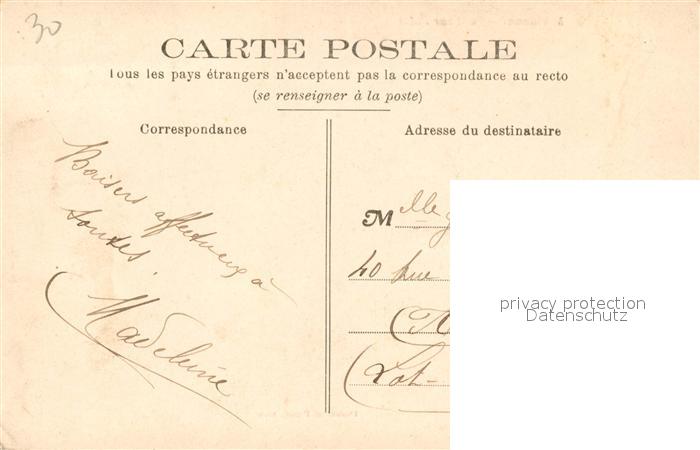 30
CARTE POSTALE
Tous les pays étrangers n'acceptent pas la correspondance au recto
(se renseigner à la poste)
Correspondance
Baisers affectueux à
toutes.
Madeleine
Adresse du destinataire
Mlle
40 Rue
Lot-
privacy protection
Datenschutz